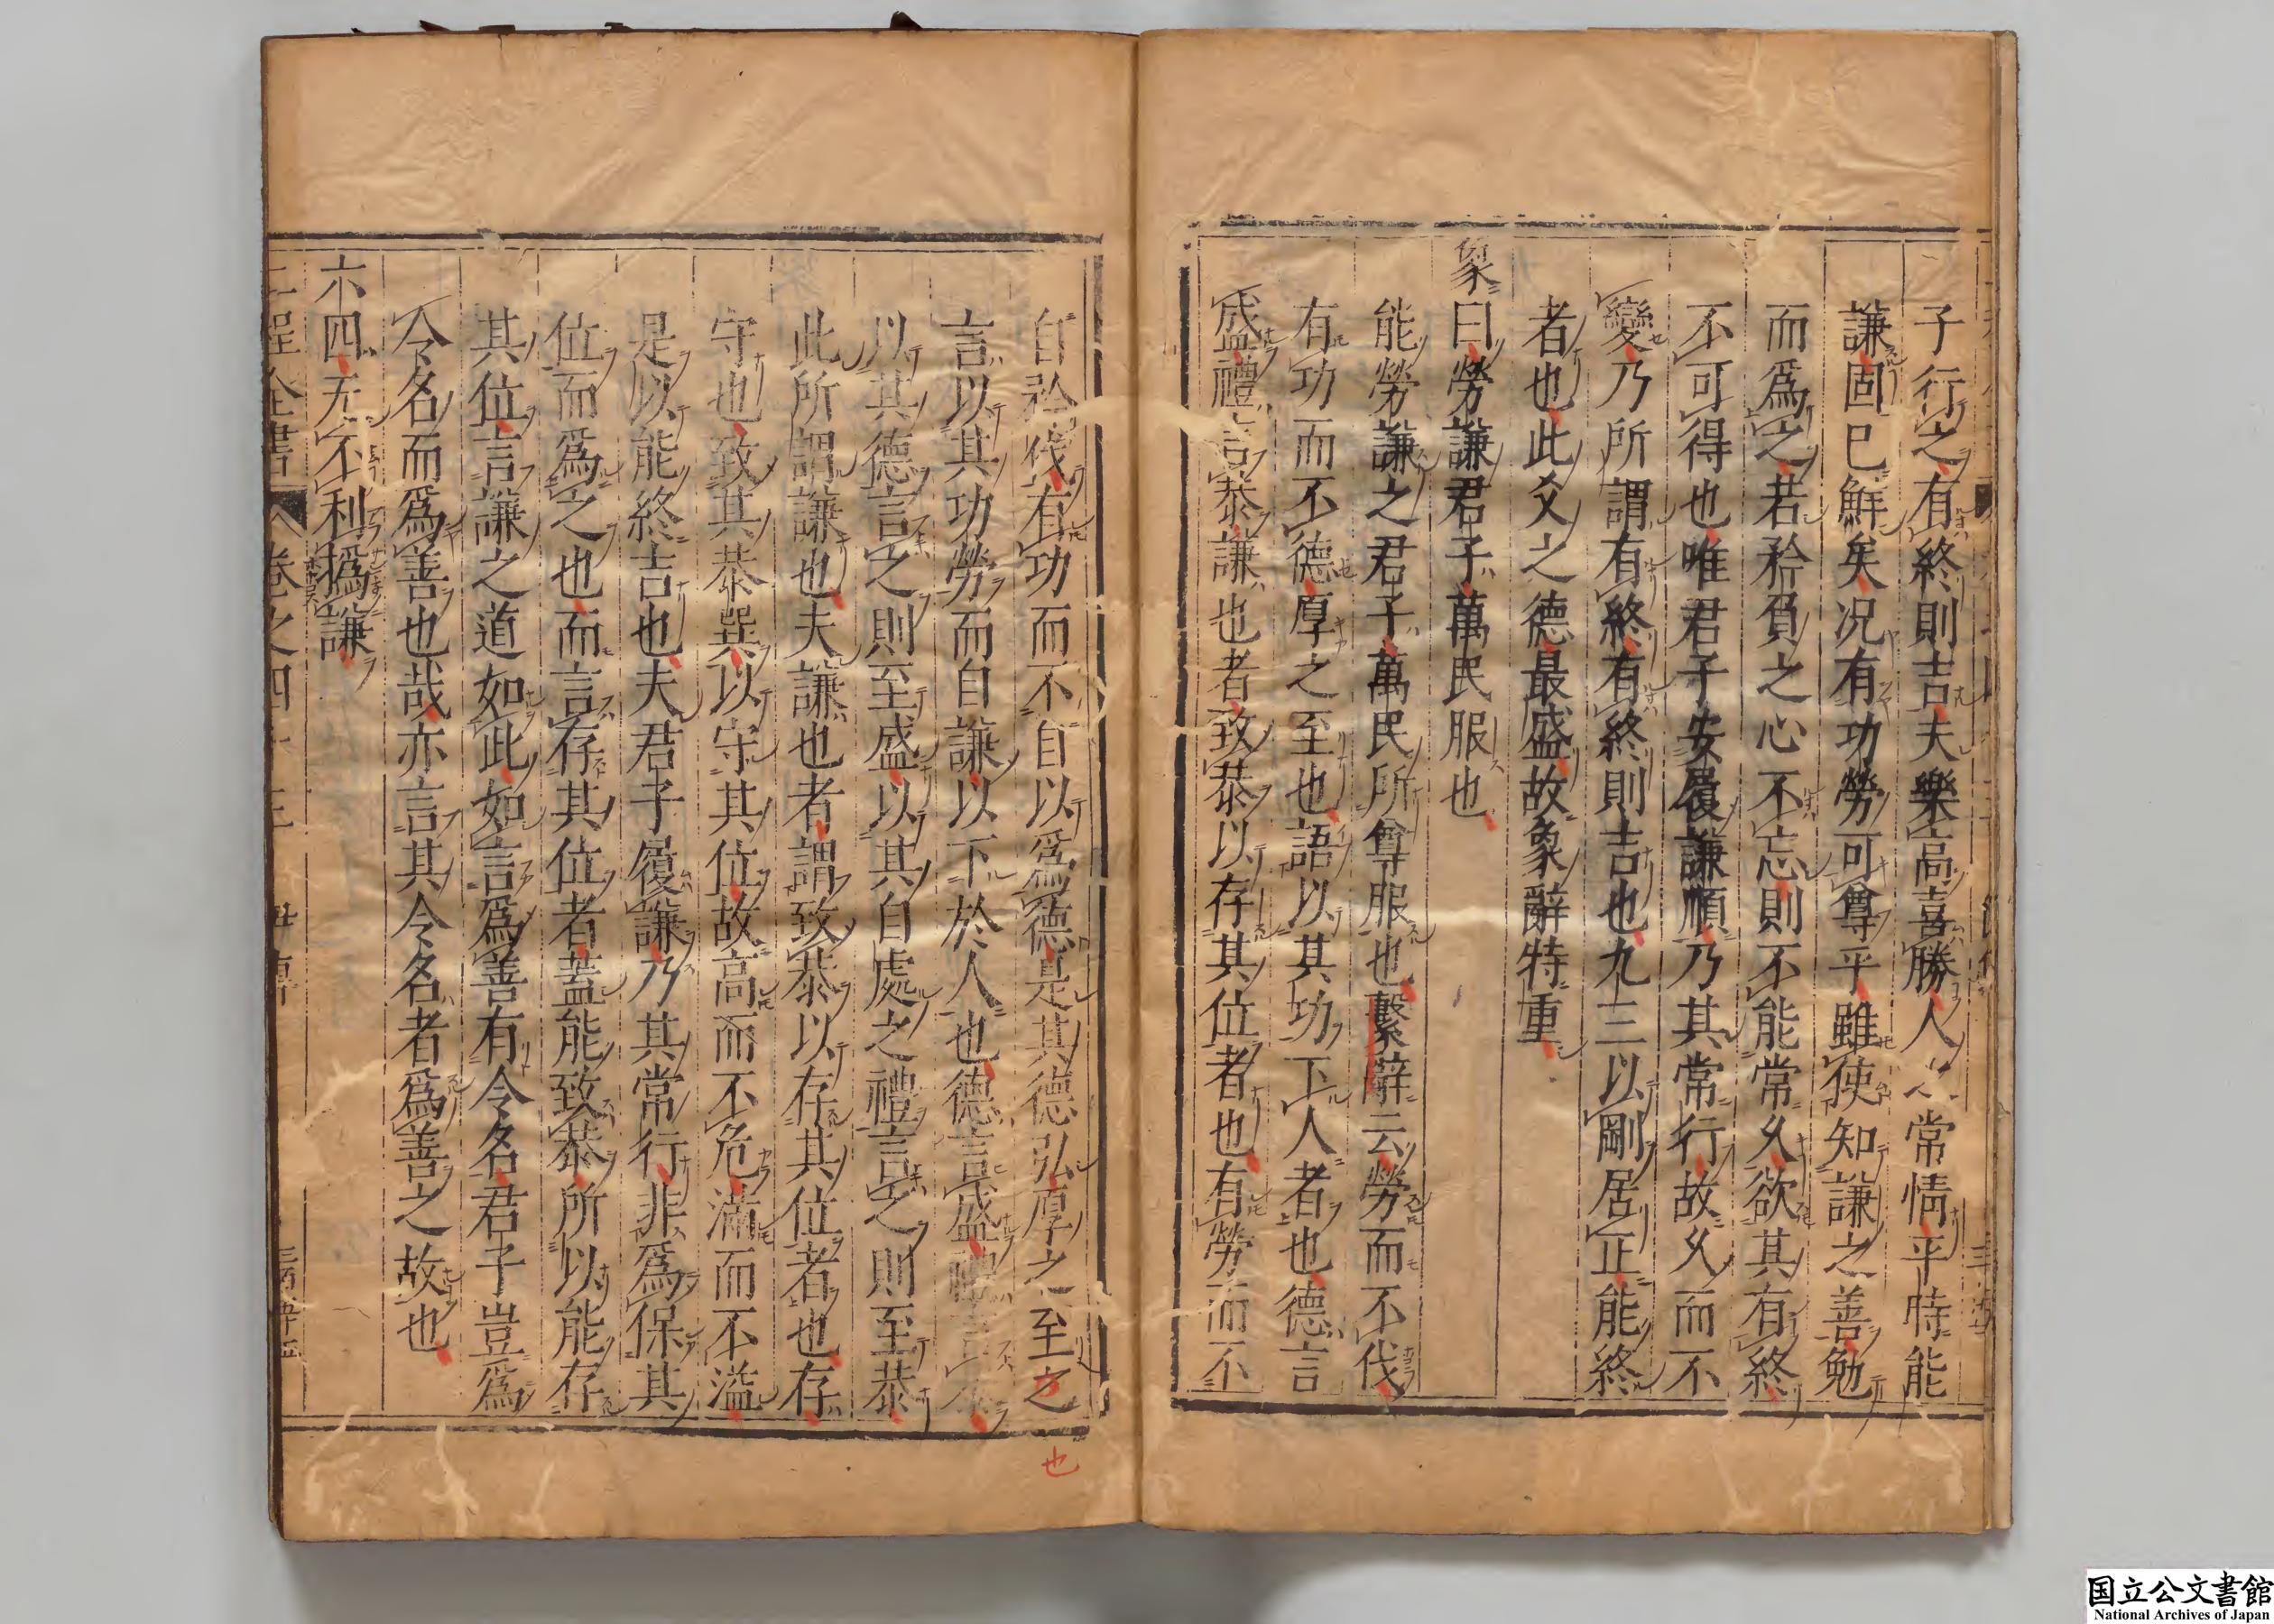 子行之有終則吉夫樂高喜勝人之常情平時能
謙固已鮮矣况有功勞可尊乎雖使知謙之善勉
而爲之若矜負之心不忘則不能常久欲其有終
不可得也唯君子安履謙順乃其常行故久而不
變乃所謂有終有終則吉也九三以剛居正能終
者也此爻之德最盛故象辭特重
象曰勞謙君子萬民服也
能勞謙之君子萬民所尊服也繫辭云勞而不伐
有功而不德厚之至也語以其功下人者也德言
盛禮言恭謙也者致恭以存其位者也有勞而不
自矜伐有功而不自以爲德是其德弘厚之至之
也
言以其功勞而自謙以下於人也德言盛禮言恭
以其德言之則至盛以其自處之禮言之則至恭
此所謂謙也夫謙也者謂致恭以存其位者也存
守也致其恭巽以守其位故高而不危滿而不溢
是以能終吉也夫君子履謙乃其常行非爲保其
位而爲之也而言存其位者蓋能致恭所以能存
其位言謙之道如此如言爲善有令名君子豈爲
令名而爲善也哉亦言其令名者爲善之故也
六四无不利撝謙
二程全書 卷之四十三
国立公文書館
National Archives of Japan